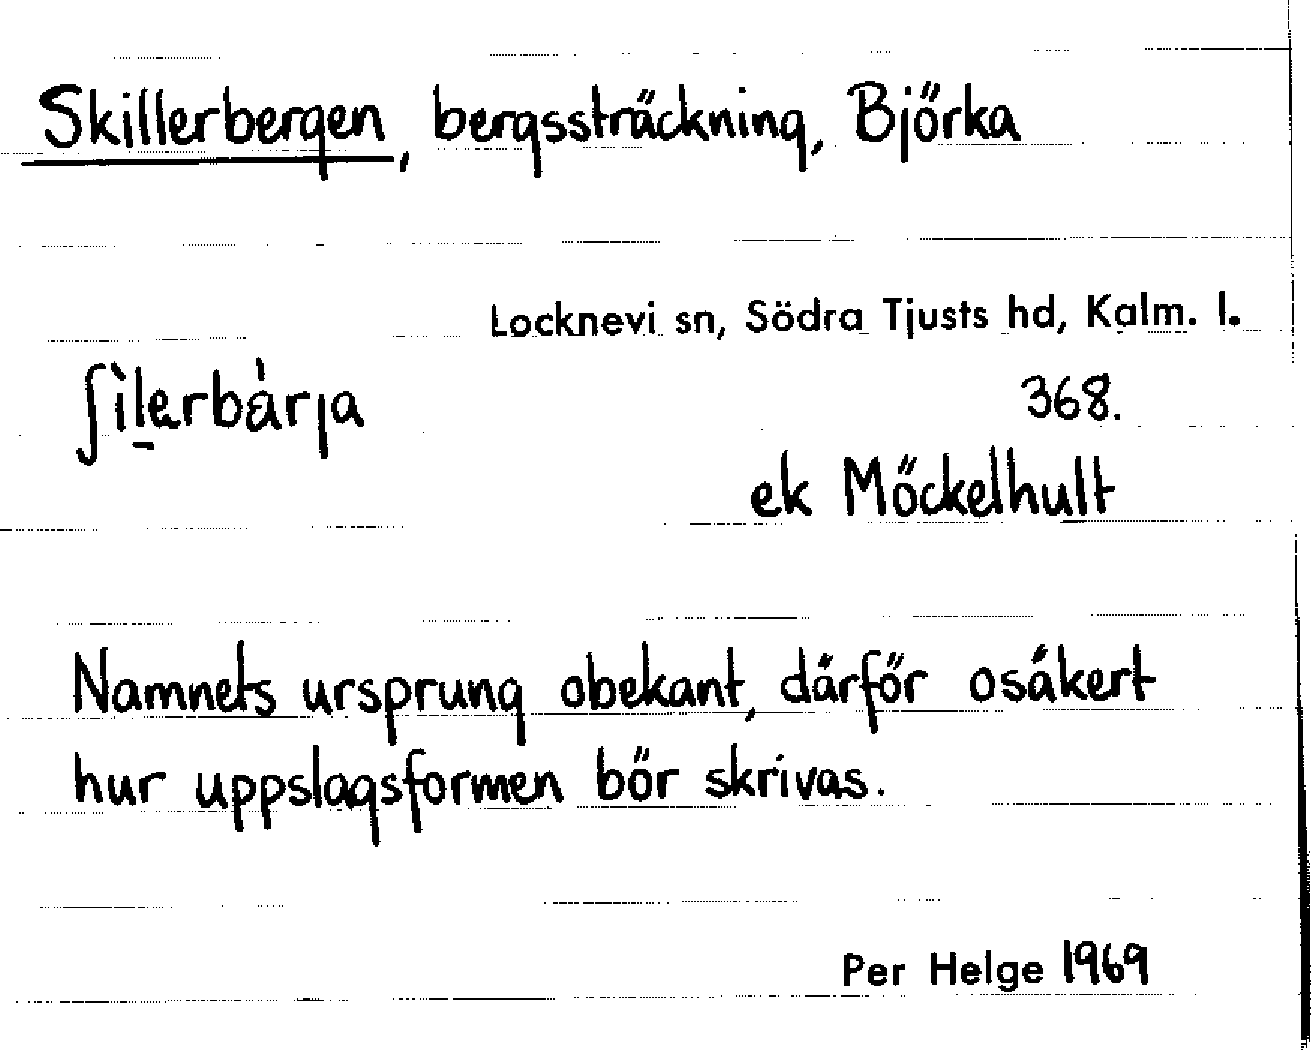 Skillerbergen, bergssträckning, Björka
Locknevi sn, Södra Tjusts hd, Kalm. l.
ʃìlerbàrja
368.
ek Möckelhult
Namnets ursprung obekant, därför osäkert
hur uppslagsformen bör skrivas.
Per Helge 1969